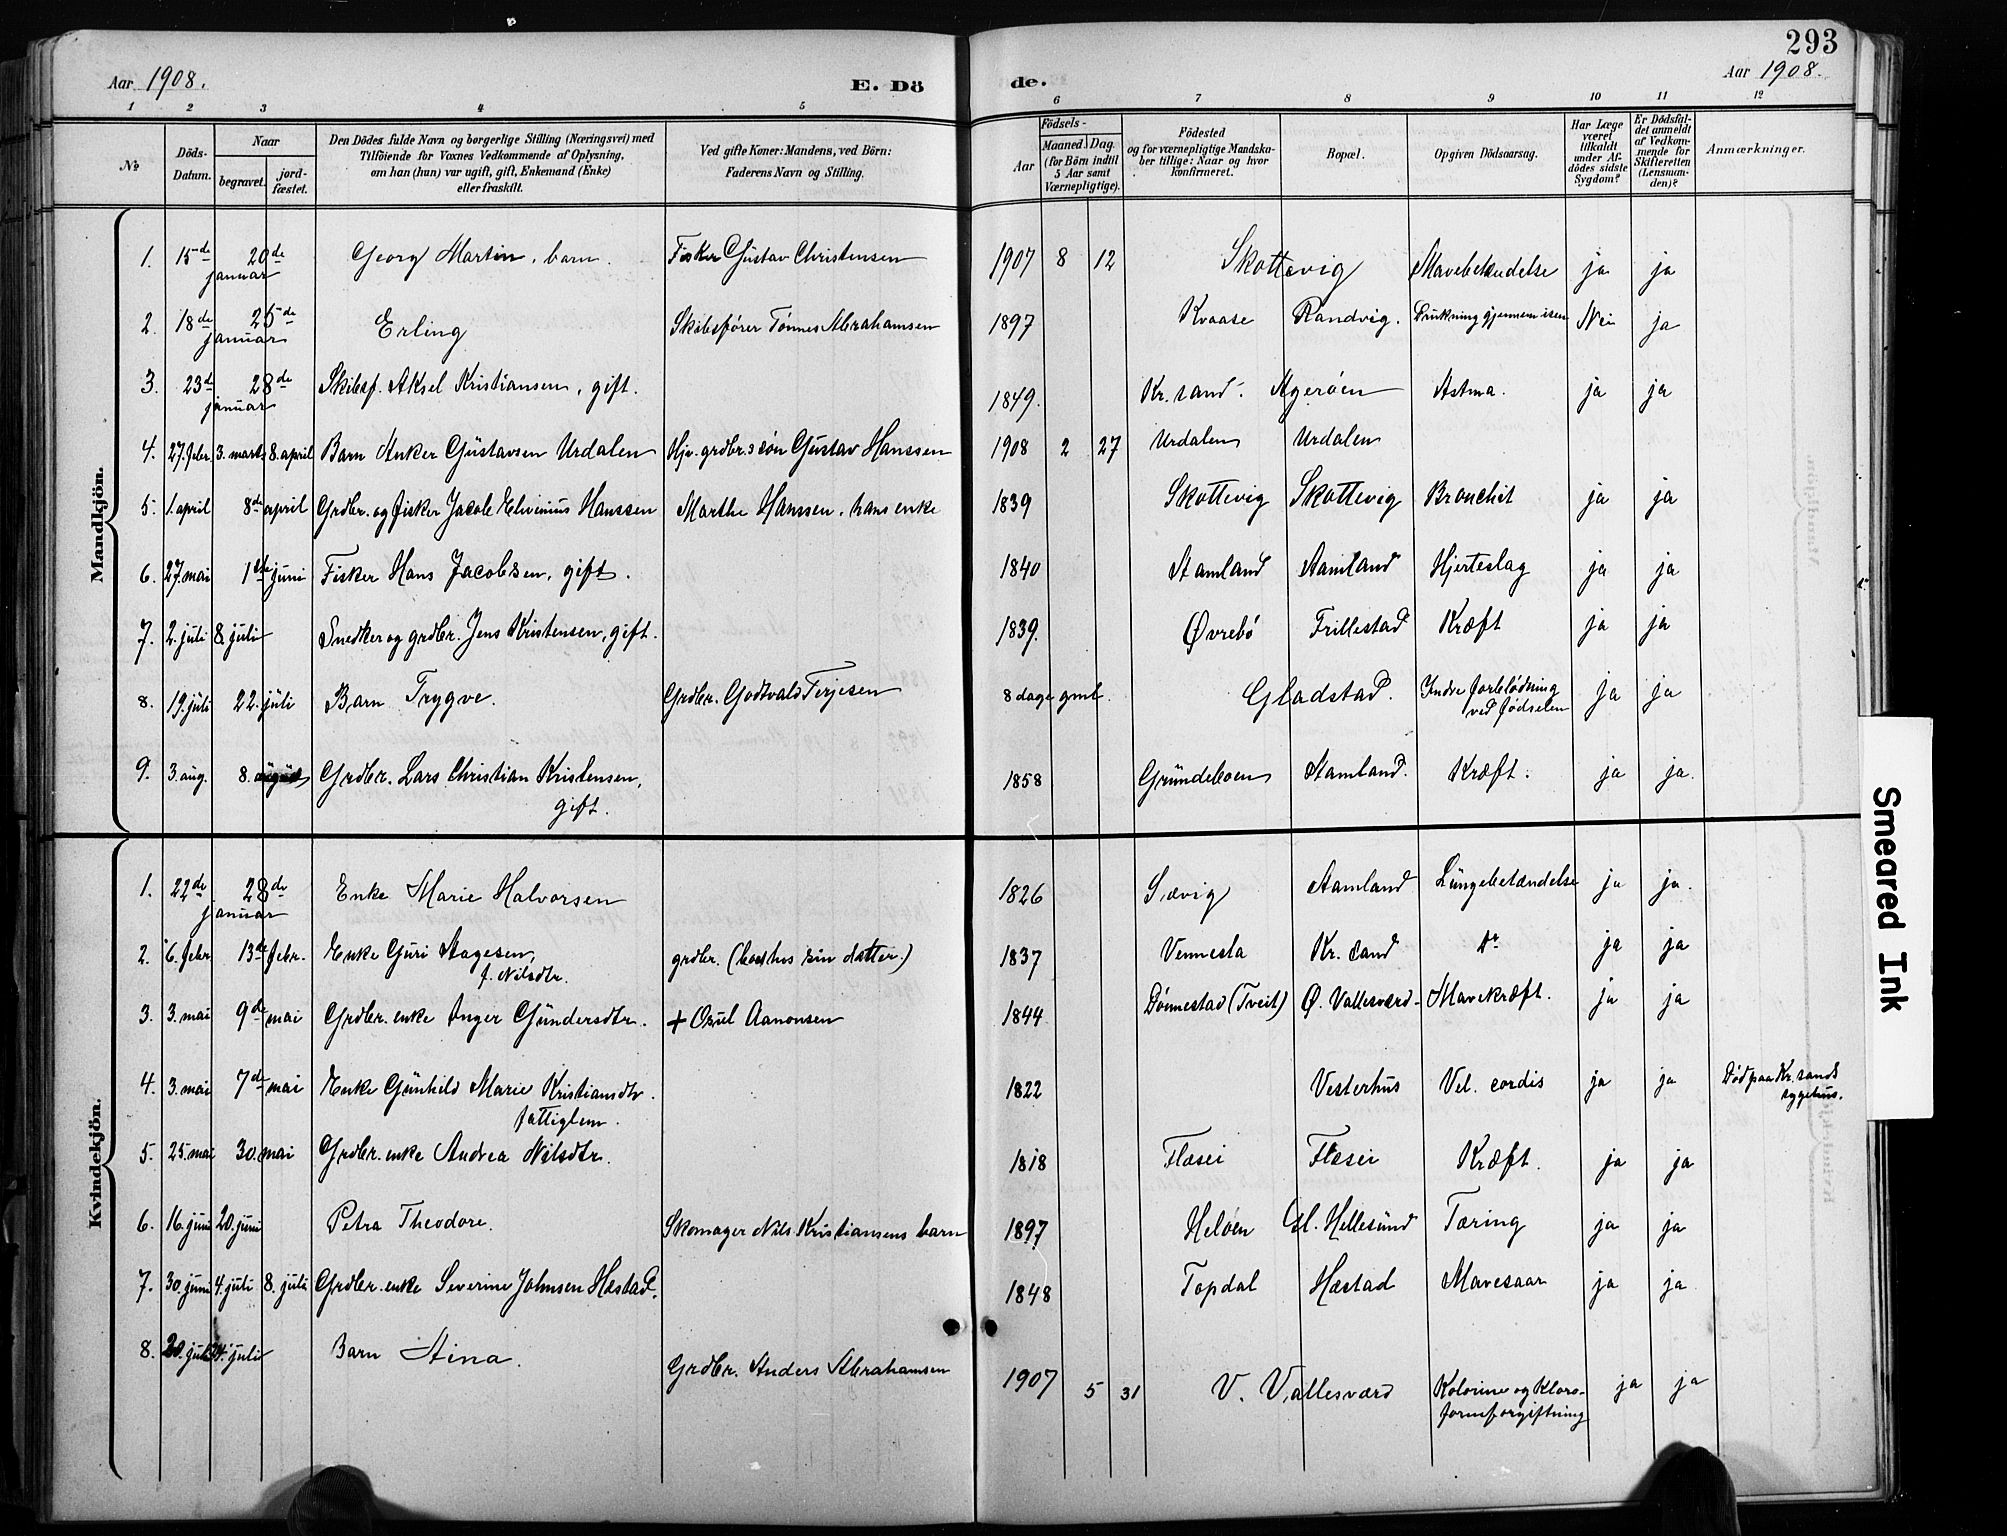 293
Aar 1908. E. Dö de. Aar 1908.
1 2 3 4 5 6 7 8 9 10 11 12
No.
Döds-Datum.
Naar
begravet.
jord-fæstet.
Den Dödes fulde Navn og borgerlige Stilling (Næringsvei) med
Tilföiende for Voxnes Vedkommende af Oplysning,
om han (hun) var ugift, gift, Enkemand (Enke)
eller fraskilt.
Ved gifte Koner: Mandens, ved Börn:
Faderens Navn og Stilling.
Födsels-
Aar
Maaned. Dag.
(for Börn indtil
5 Aar samt
Værnepligtige).
Födested
og for værnepligtige Mandska-
ber tillige: Naar og hvor
konfirmeret.
Bopæl.
Opgiven Dödsaarsag.
Har Læge
været
tilkaldt
under Af-
dödes sidste
Sygdom?
Er Dödsfal-
det anmeldt
af Vedkom-
mende for
Skifteretten
(Lensman-
den)?
Anmærkninger.
Mandkjön.
1. 15de 20de januar Georg Martin, barn. Fisker Gustav Christensen 1907 8 12 Skottevig Mavebetændelse ja ja
2. 18de 25de januar Erling Skibsfører Tønnes Abrahamsen 1897 Kvaase Randvig. Drukning gjennem isen Nei ja
3. 23d 28de januar Skibsf. Aksel Kristiansen, gift. 1849. Kr.sand. Agerøen Astma. ja ja
4. 27. febr. 3. marts 8. april Barn Anker Gustavsen Urdalen Hjv. grdbr.s søn Gustav Hanssen 1908 2 27 Urdalen Urdalen
5. 1. april 8de april Grdbr. og fisker Jacob Elvinius Hanssen Marthe Hanssen, hans enke 1839 Skottevig Skottevig Bronchit ja ja
6. 27. mai 1ste juni Fisker Hans Jacobsen, gift. 1840 Stamland Aamland Hjerteslag ja ja
7. 2. juli 8. juli Snedker og grdbr. Jens Kristensen, gift. 1839. Øvrebø Frillestad Kræft ja ja
8. 19. juli 22. juli Barn Trygve. Grdbr. Godtvald Terjesen 8 dage gml. Gladstad. Indre forblødning ved fødselen ja ja
9. 3. aug. 8. august Grdbr. Lars Christian Kristensen, gift. 1858 Grundeboen Stamland. Kræft. ja ja.
Kvindekjön.
1. 22de 28de januar Enke Marie Halvorsen 1826 Sævig Aamland Lungebetændelse ja ja.
2. 6. febr. 13de febr. Enke Guri Aagesen, f. Nilsdtr. grdbr. (bod hos sin datter.) 1837 Vennesla Kr.sand do ja ja
3. 3. mai 9de mai Grdbr. enke Inger Gundersdtr. + Orul Aanonsen 1844 Dønnestad (Tveit) Ø. Vallesværd. Mavekræft. ja ja
4. 3. mai 7de mai Enke Gunhild Marie Kristiansdtr. fattiglem. 1822 Vesterhus Vel. cordis ja ja Død paa Kr.sands sygehus.
5. 25. mai 30. mai Grdbr. enke Andrea Nilsdtr. 1818 Flæsei Flæsei Kræft. ja ja
6. 16. juni 20. juni Petra Theodore. Skomager Nils Kristiansens barn 1897 Heløen Gl. Hellesund Tæring ja ja
7. 30. juni 4. juli 8. juli Grdbr. enke Severine Johnsen Hæstad. 1848 Topdal Hæstad Mavesaar ja ja
8. 20. juli 24. juli Barn Aina. Grdbr. Anders Abrahamsen 1907 5 31 V. Vallesværd Kolorine og Kloro-
formforgiftning ja ja
Smeared Ink